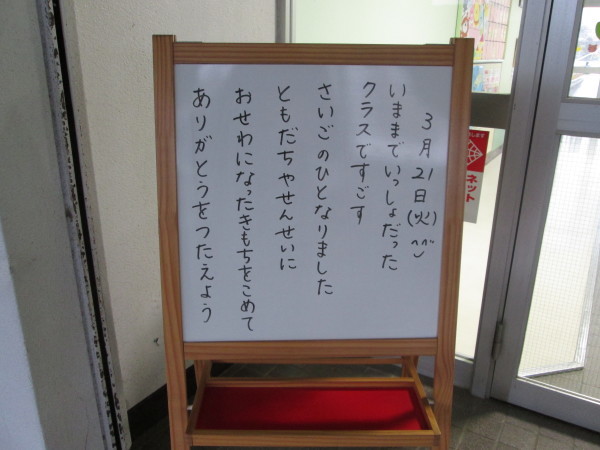 3月21日(火)^^
いままでいっしょだった
クラスですごす
さいごのひとなりました
ともだちやせんせいに
おせわになったきもちをこめて
ありがとうをつたえよう
ネット